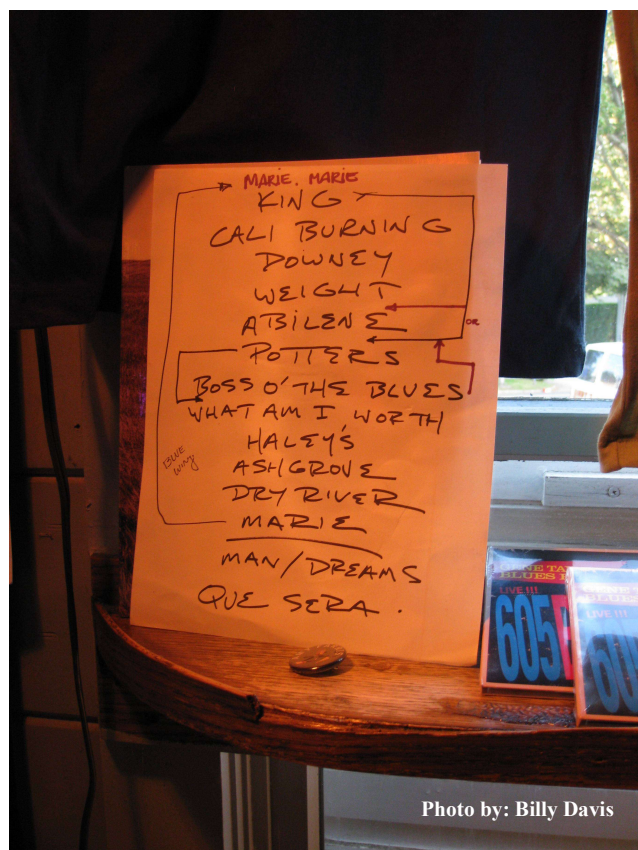 MARIE, MARIE
KING
CALI BURNING
DOWNEY
WEIGHT
ABILENE
OR
POTTERS
BOSS O' THE BLUES
WHAT AM I WORTH
HALEY'S
BLUE
WING
ASHGROVE
DRY RIVER
MARIE
MAN/DREAMS
QUE SERA.
GENE TA
BLUES
LIVE !!!
605
LIVE !!!
60
Photo by: Billy Davis